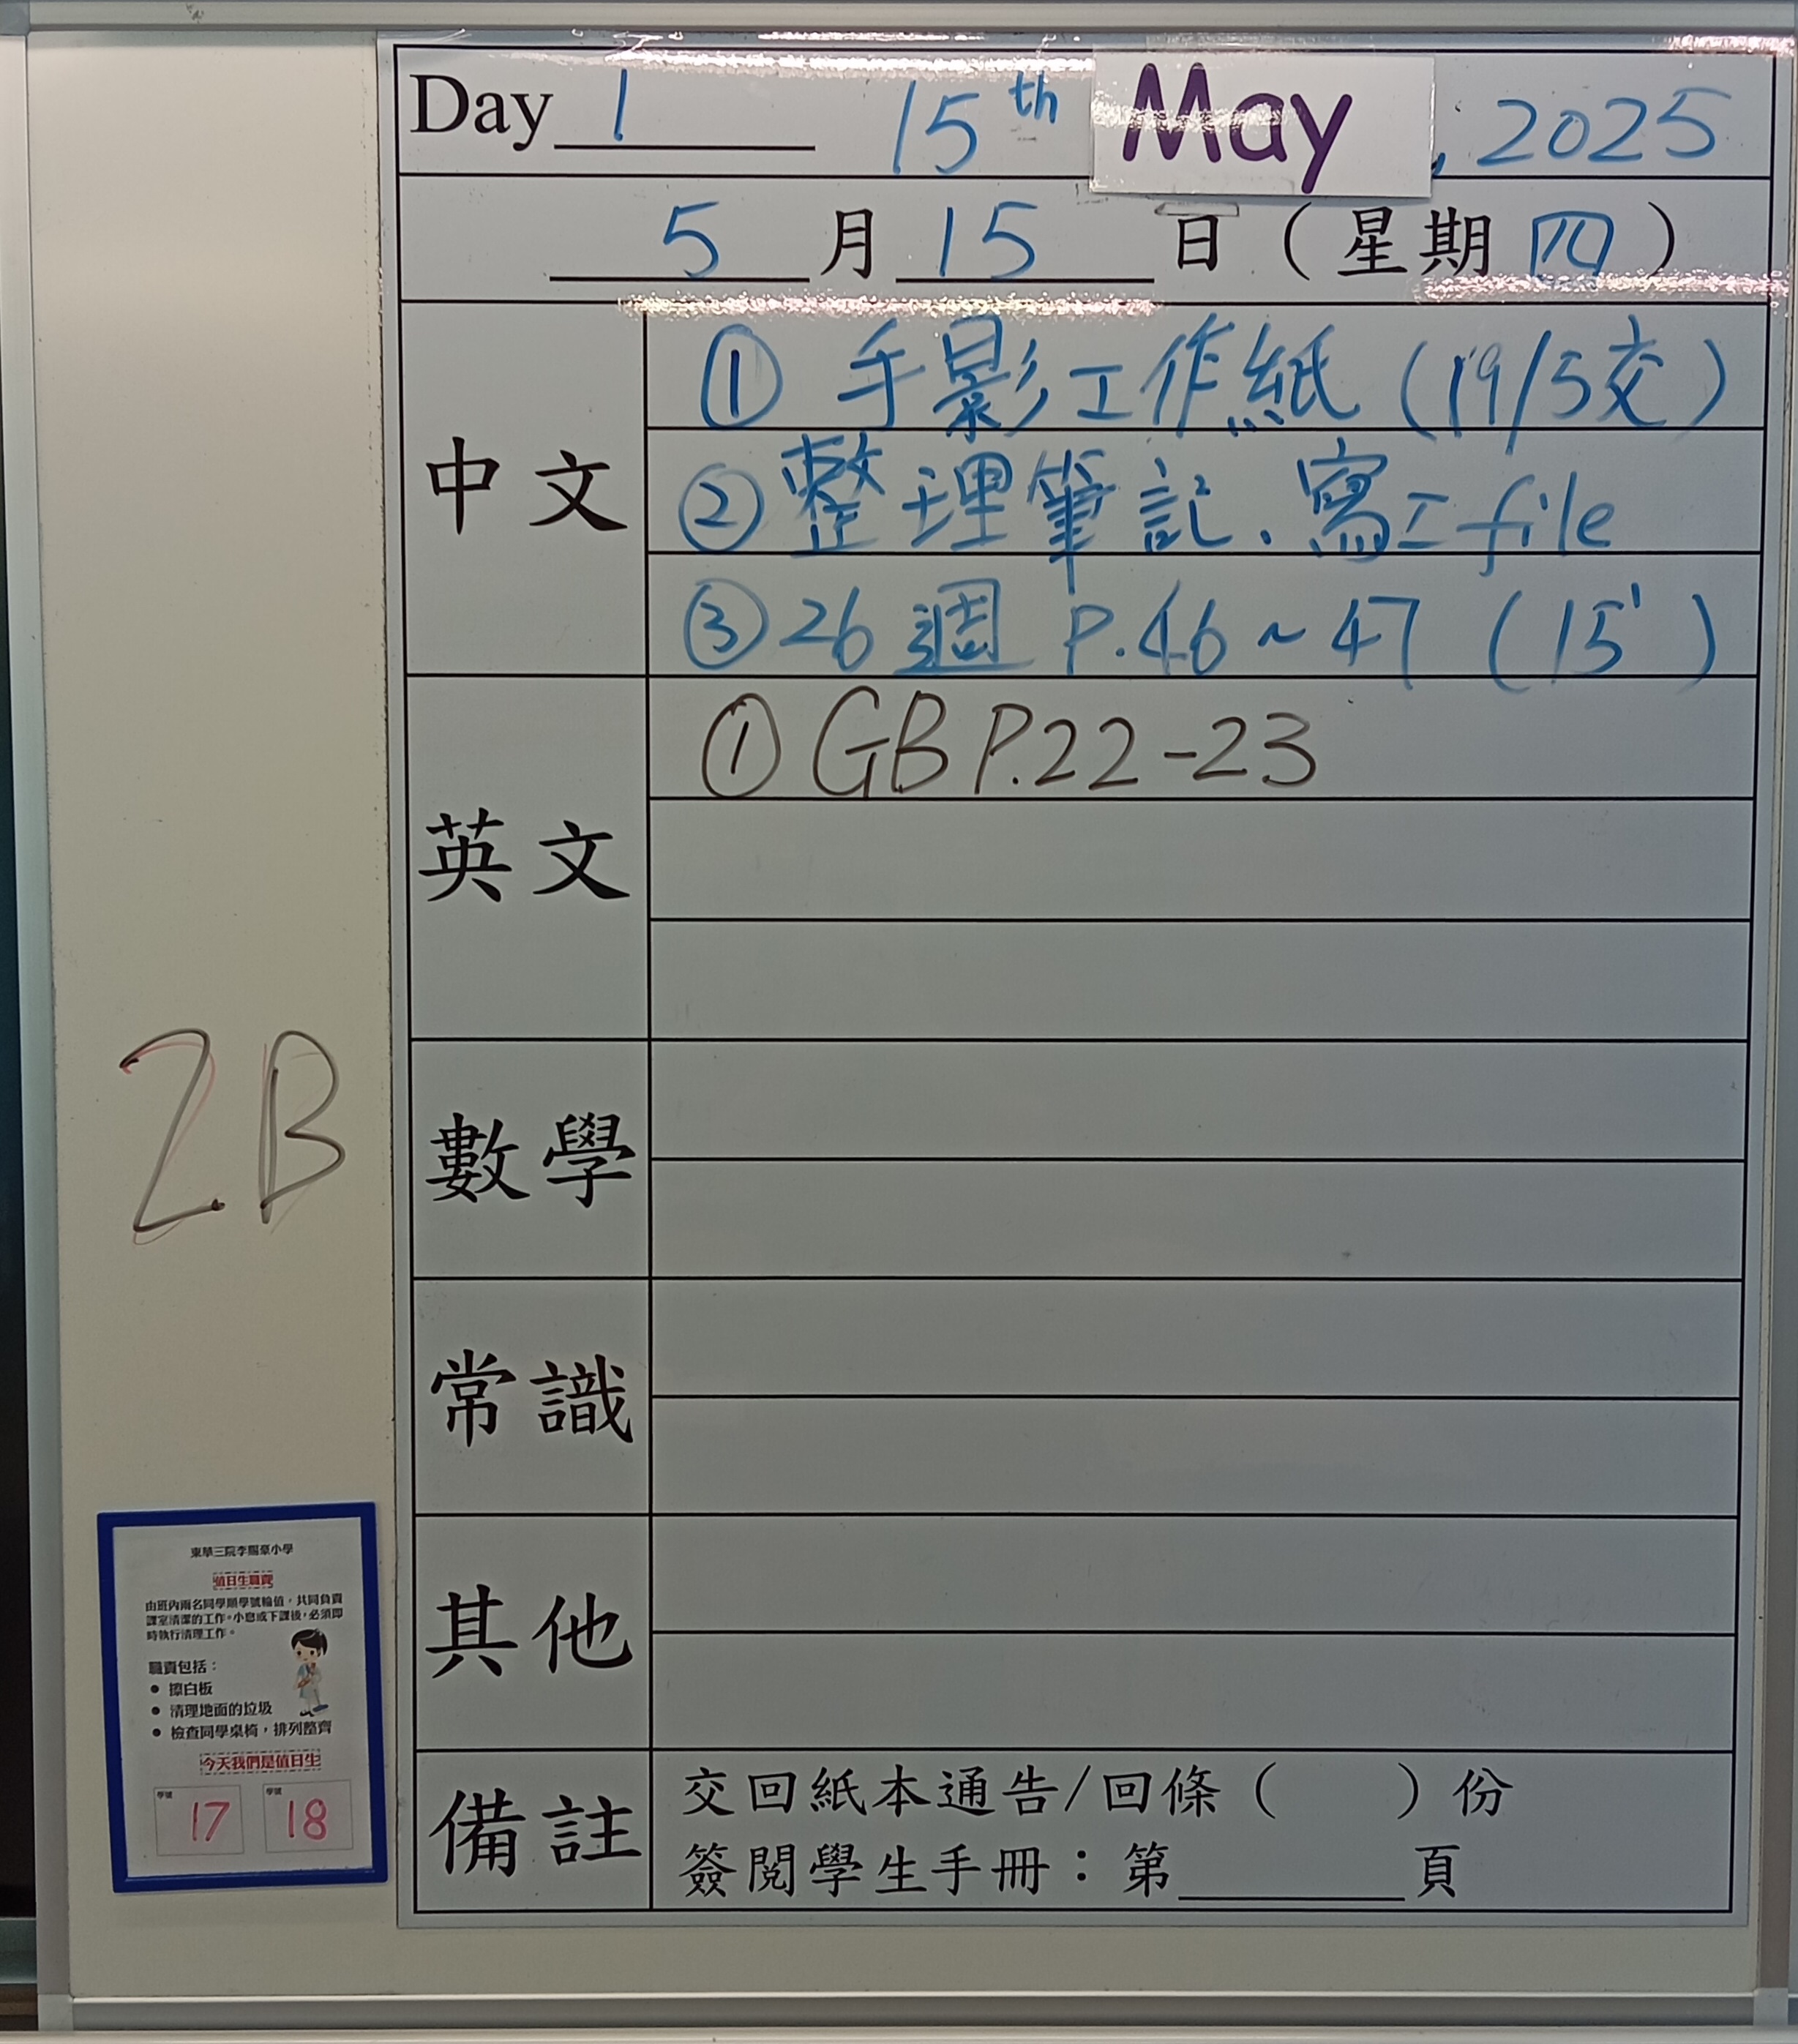 Day 1 15th May, 2025
5月15日（星期四）
中文
① 手影工作紙 (19/5交)
② 整理筆記、寫工file
③ 26週 P.46~47 (15')
英文
① GB P.22-23
數學
常識
其他
備註
交回紙本通告/回條（ ）份
簽閱學生手冊：第____頁
2B
東華三院李賜豪小學
值日生職責
由班內兩名同學順學號輪值，共同負責
課室清潔的工作。小息或下課後，必須即
時執行清理工作。
職責包括：
● 擦白板
● 清理地面的垃圾
● 檢查同學桌椅，排列整齊
今天我們是值日生
學號 17 學號 18